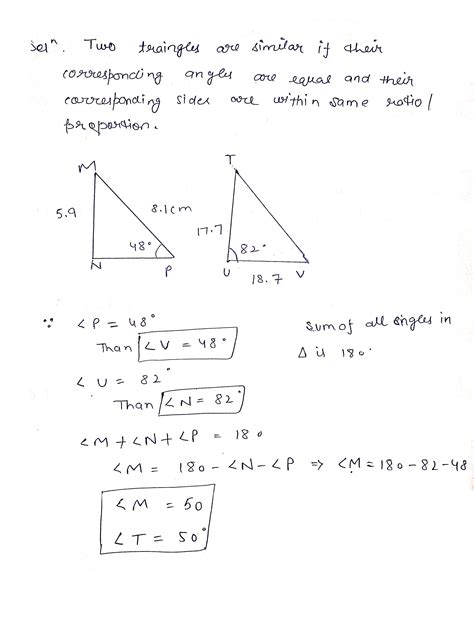 Solⁿ. Two traingles are similar if their
corresponding angles are equal and their
corresponding sides are within same ratio/
proportion.
M
5.9
8.1cm
48°
N
P
T
17.7
82°
U
V
18.7
∵ ∠P = 48°
Than ∠V = 48°
Sum of all angles in
Δ is 180.
∠U = 82°
Than ∠N = 82°
∠M + ∠N + ∠P = 180
∠M = 180 - ∠N - ∠P ⇒ ∠M = 180 - 82 - 48
∠M = 50
∠T = 50°